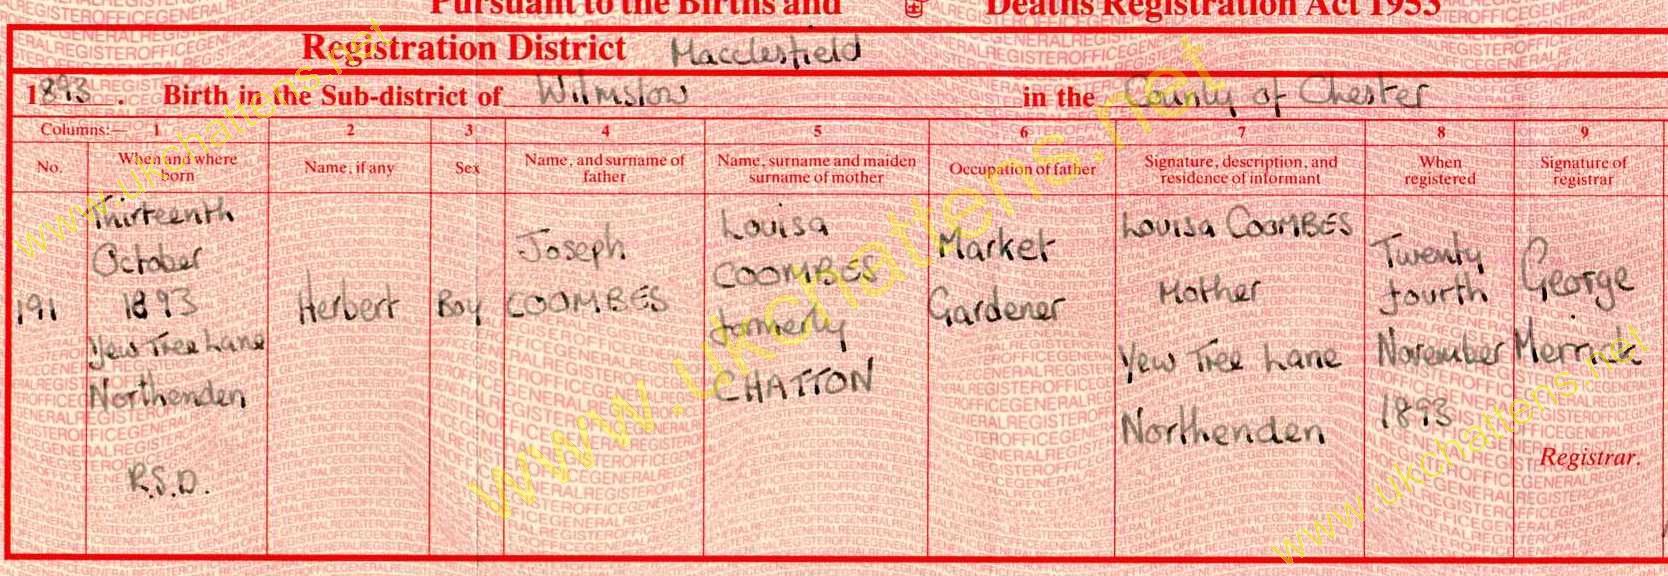 Pursuant to the Births and Deaths Registration Act 1953
Registration District Macclesfield
1893. Birth in the Sub-district of Wilmslow in the County of Chester
Columns:— 1 2 3 4 5 6 7 8 9
No.
When and where
born
Name, if any
Sex
Name, and surname of
father
Name, surname and maiden
surname of mother
Occupation of father
Signature, description, and
residence of informant
When
registered
Signature of
registrar
191
Thirteenth
October
1893
Yew Tree Lane
Northenden
R.S.D.
Herbert
Boy
Joseph
COOMBES
Louisa
COOMBES
formerly
CHATTON
Market
Gardener
Louisa COOMBES
Mother
Yew Tree Lane
Northenden
Twenty
fourth
November
1893
George
Merrick
Registrar.
www.ukchattens.net
www.ukchattens.net
www.ukchattens.net